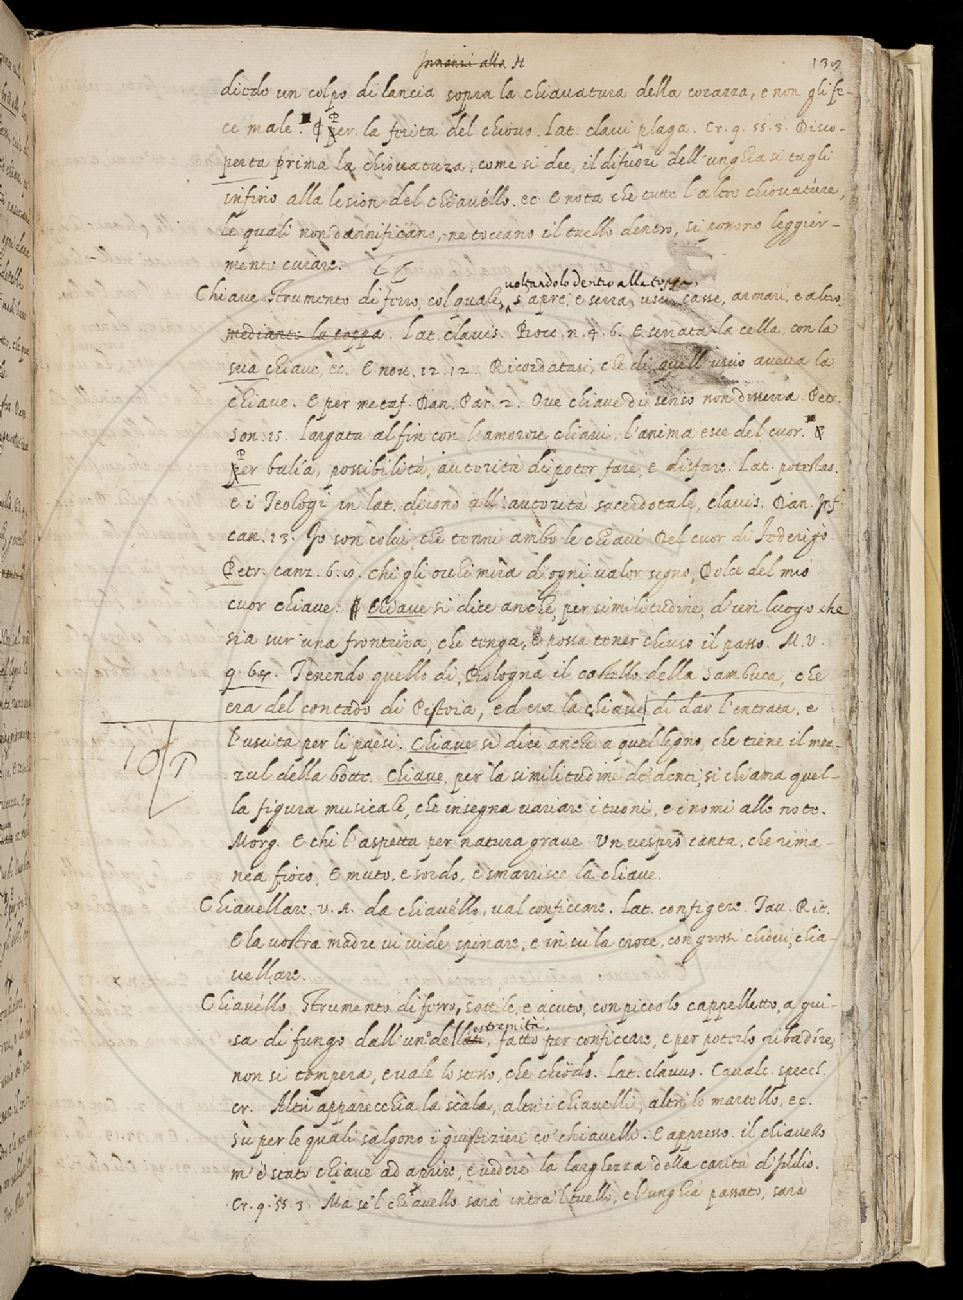 Innanzi alla H
139
diedo un colpo di lancia sopra la chiavatura della corazza, e non gli fe-
ce male. ¶ Per la ferita del chiovo. Lat. clavi plaga. Cr. 9. 55. 3. Disco-
perta prima la chiovatura, come si dee, il difuori dell'unghia si tagli
infino alla lesion del chiavéllo. ec. E nota che tutte l'altre chiovature,
le quali non dannificano, ne toccano il tuello dentro, si possono leggier-
mente curare.
voltandolo dentro alla toppa
Chiave Strumento di ferro, col quale, s'apre, e serra, usci, casse, armari, e altro
mediante la toppa. Lat. clavis. Bocc. n. 4. 6. E serrata la cella con la
sua chiave, ec. E nov. 12. 12. Ricordatasi, che di quell'uscio aveva la
chiave. E per metaf. Dan. Par. 2. Ove chiave di senso non disserra. Petr.
son. 15. Largata alfin con l'amorose chiavi. l'anima esce del cuor. ¶
Per balìa, possibilità, autorità di poter fare, e disfare. Lat. potestas.
e i Teologi in lat. dicono all'autorità sacerdotale, clavis. Dan. Inf.
can. 13. Io son colui, che tenni ambo le chiavi Del cuor di Federigo.
Petr. canz. 6. 10. Chi gli occhi mira d'ogni valor segno, Dolce del mio
cuor chiave. ¶ Chiave si dice anche, per similitudine, d'un luogo che
sia sur una frontiera, che tenga, e possa tener chiuso il passo. M. V.
9. 64. Tenendo quello di Bologna il castello della Sambuca, che
era del contado di Pistoia, ed era la chiave di dar l'entrata, e
l'uscita per li paesi. Chiave si dice anche a quel legno, che tiene il mez-
zul della botte. Chiave, per la similitudine de denti, si chiama quel-
la figura musicale, che insegna variare i tuoni, e i nomi alle note.
Morg. E chi l'aspetta per natura grave Un vespro canta, che rima-
nea fioco, E muto, e sordo, e smarrisce la chiave.
Chiavellare. V. A. da chiavéllo, val conficcare. Lat. configere. Tav. Rit.
E la vostra madre vi vide spinare, e in su la croce, con grossi chiovi, chia-
vellare.
Chiavéllo, Strumento di ferro, sottile, e acuto, con piccolo cappelletto, a gui-
estremità
sa di fungo dall'un' dell , fatto per conficcare, e per poterlo ribadire,
non si tempera, e vale lo stesso, che chiòdo. Lat. clavus. Cavalc. specch.
cr. Altri apparecchia la scala, altri i chiavelli, altri lo martello, ec.
Sù per le quali salgono i giustizieri co' chiavelli. E appresso. il chiavello
m'è stato chiave ad aprire, e vedere la larghezza della carità
Cr. 9. 55. 3. Ma se'l chiavello sarà intra'l tuello, e l'unghia passato, sarà